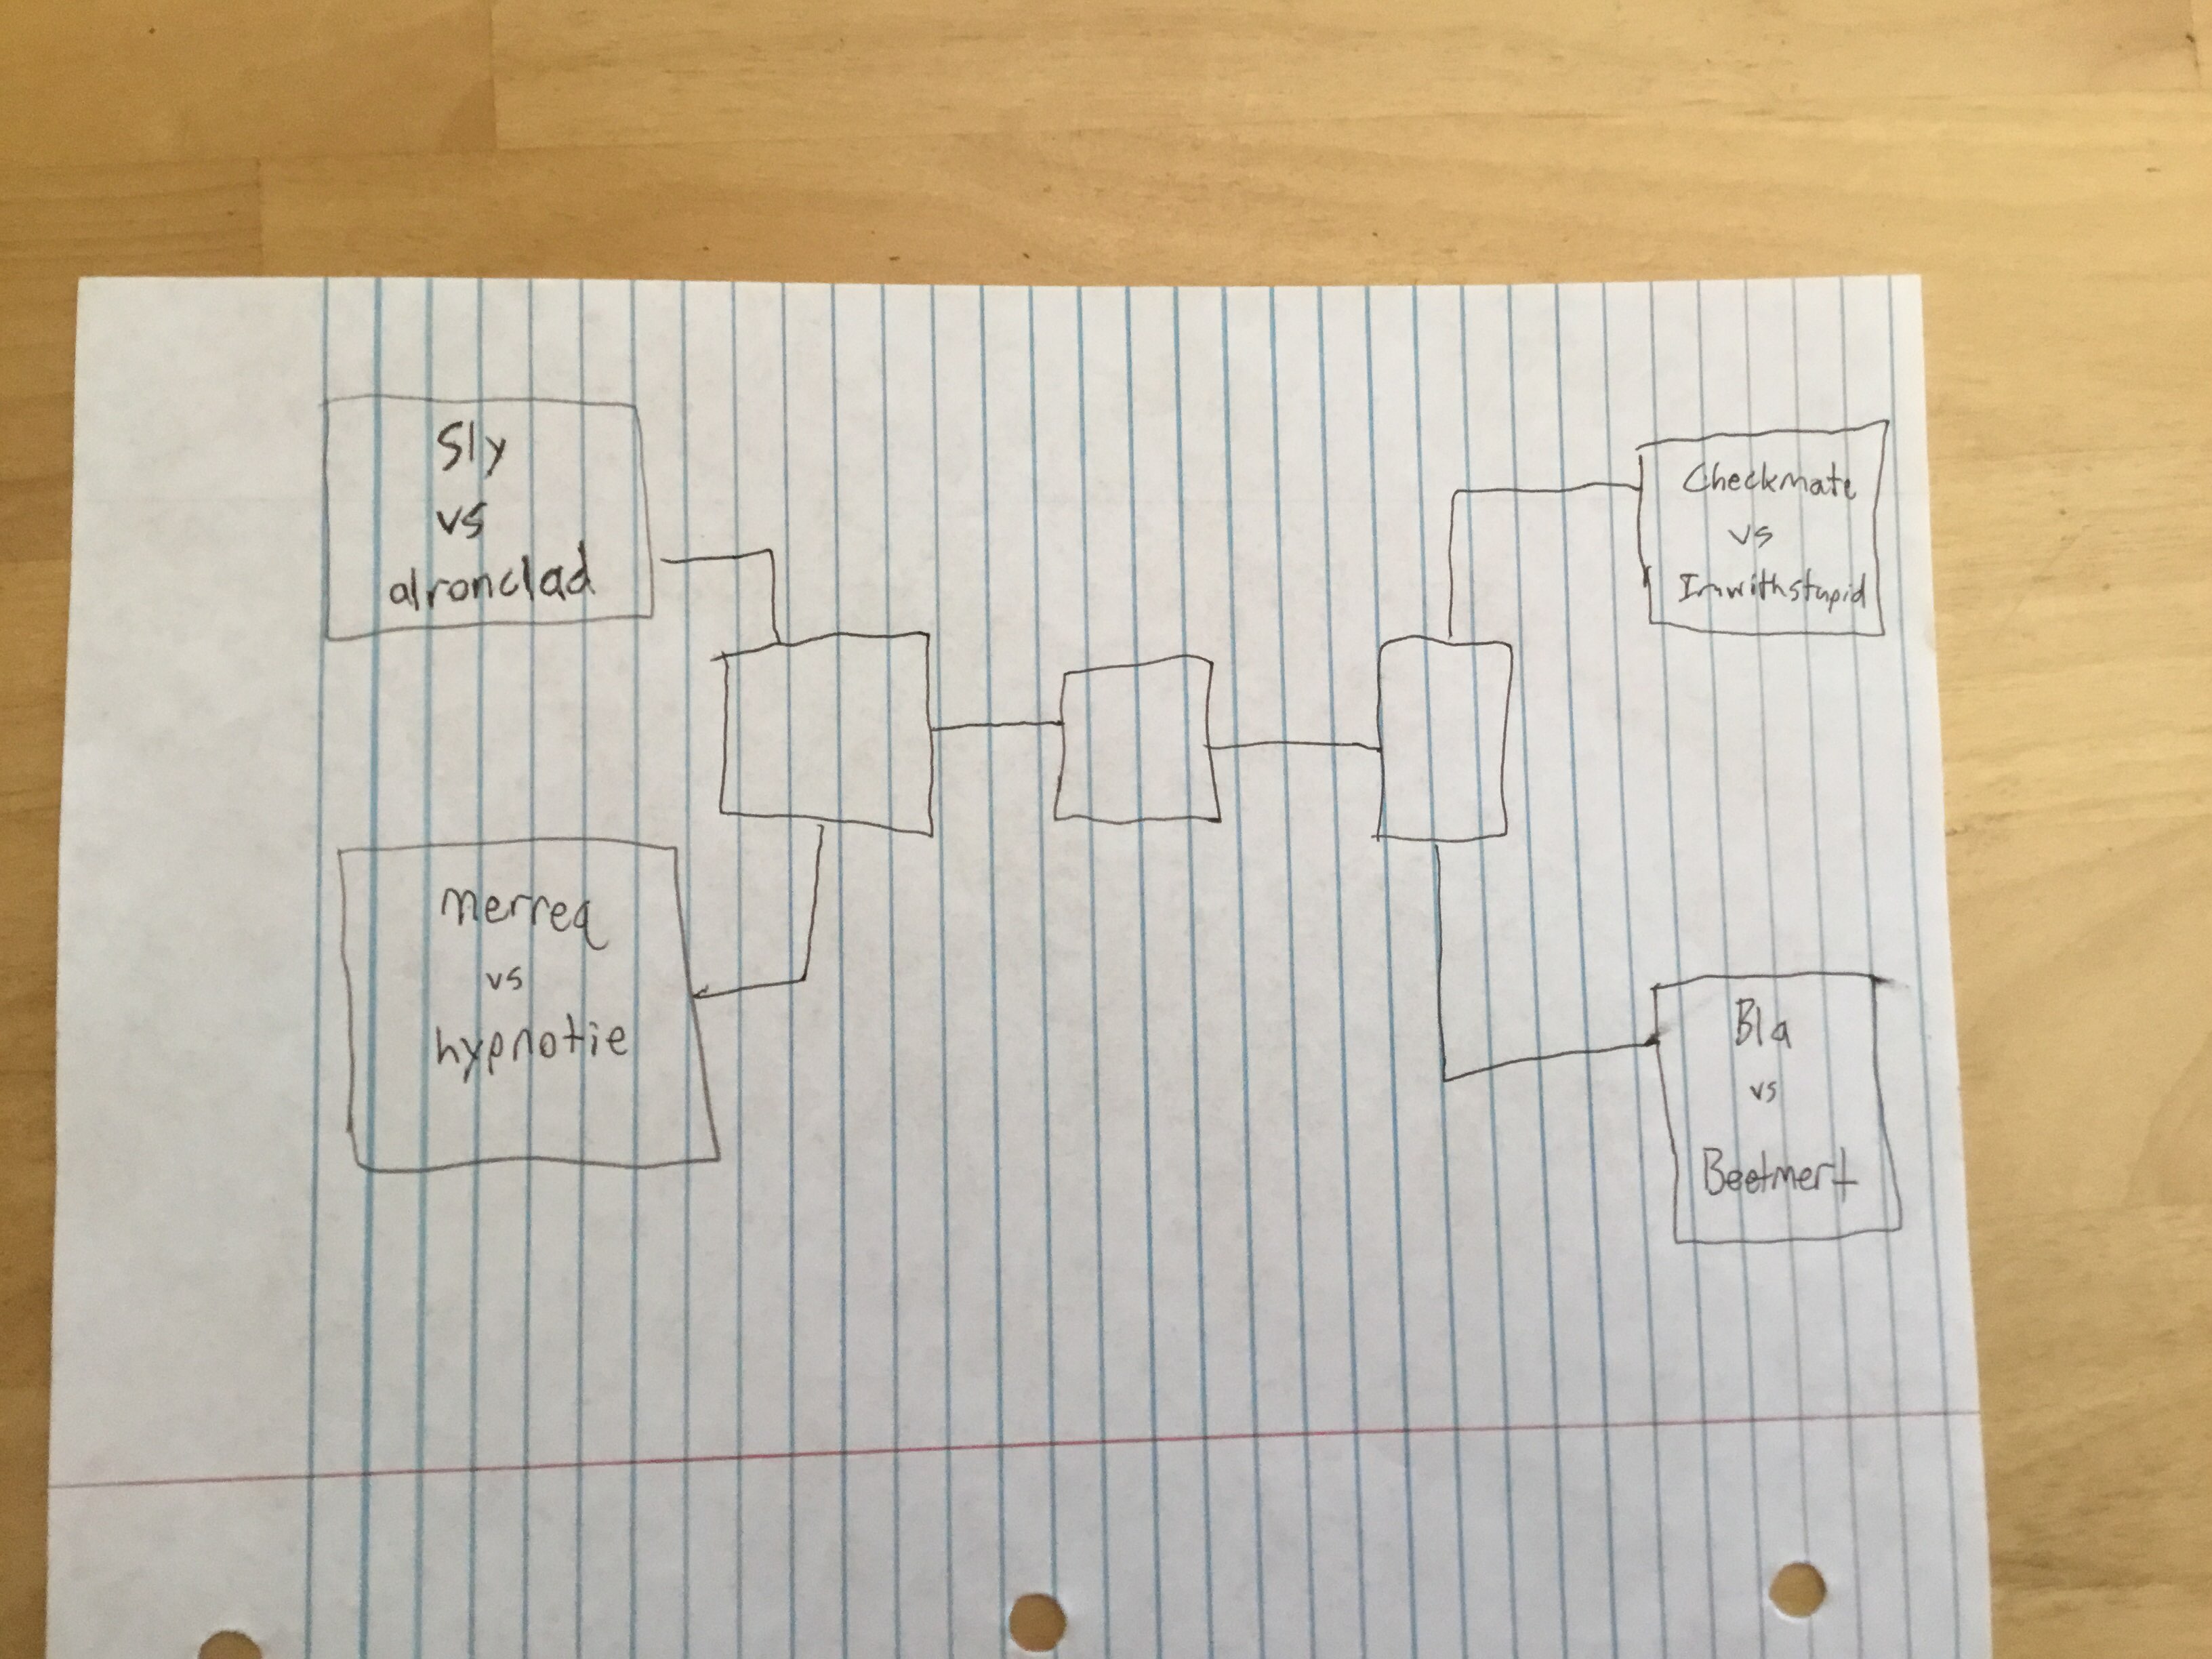 Sly
vs
alronclad
Merreq
vs
hypnotie
Checkmate
vs
Imwithstupid
Bla
vs
Beetmert